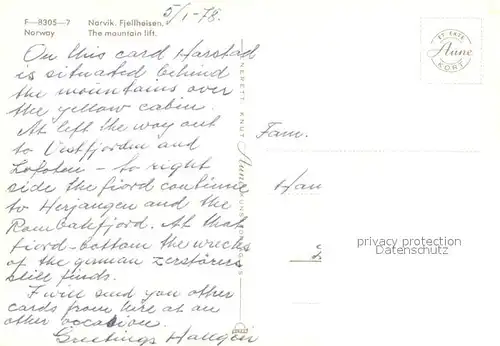 F-8305-7 Narvik. Fjellheisen.
Norway The mountain lift.
5/1-78.
On this card Harstad
is situated behind
the mountains over
the yellow cabin.
At left the way out
to Vestfjorden and
Lofoten - to right
side the fiord continue
to Herjangen and the
Rombakfjord. At that
fiord-bottom the wrecks
of the german zerstörers
still finds.
I will send you other
cards from here at an
other occasion.
Greetings Hallgeir
ENERETT KNUT Aune
ET EKTE
Aune
KORT
Fam.
Han
privacy protection
Datenschutz